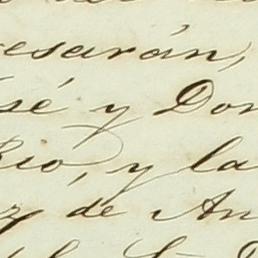 esarán,
sé y Don
Rio, y la
z de An